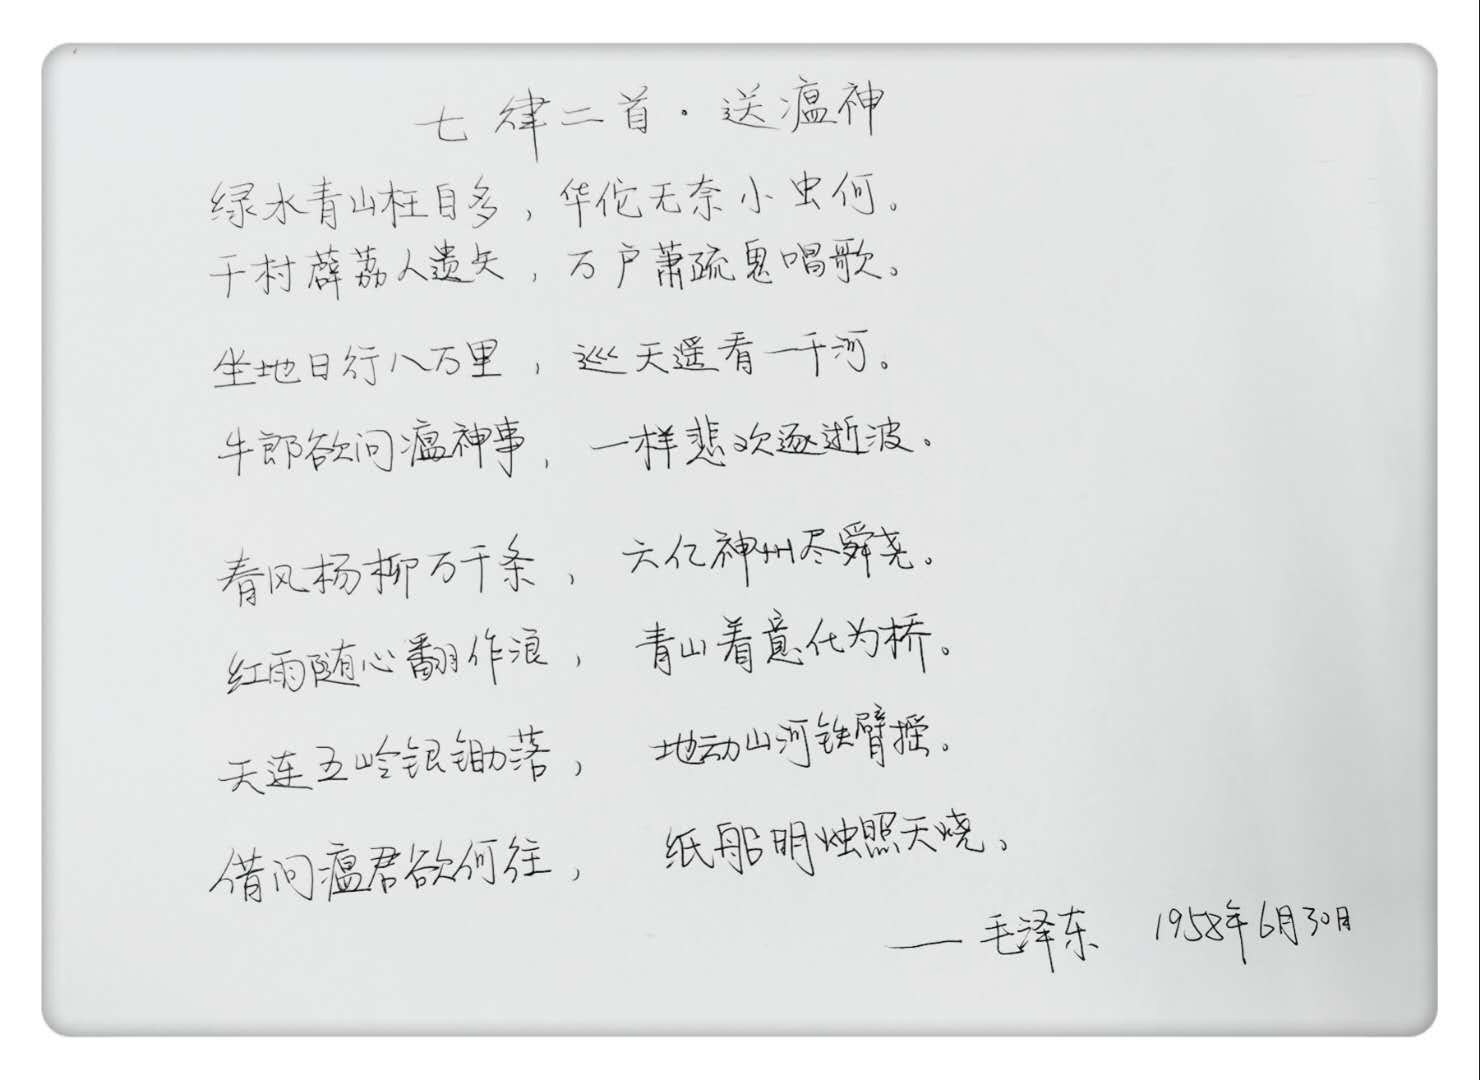 七律二首·送瘟神
绿水青山枉自多，华佗无奈小虫何。
千村薜荔人遗矢，万户萧疏鬼唱歌。
坐地日行八万里，巡天遥看一千河。
牛郎欲问瘟神事，一样悲欢逐逝波。
春风杨柳万千条，六亿神州尽舜尧。
红雨随心翻作浪，青山着意化为桥。
天连五岭银锄落，地动山河铁臂摇。
借问瘟君欲何往，纸船明烛照天烧。
——毛泽东 1958年6月30日